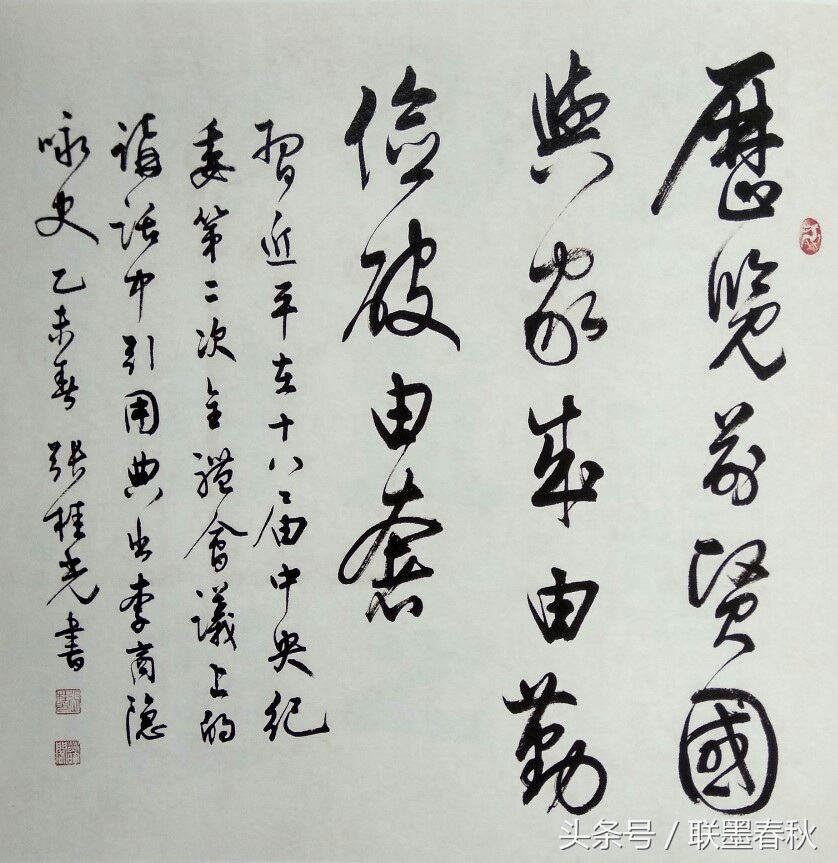 歷覽前賢國
與家成由勤
儉破由奢
習近平在十八届中央紀
委第二次全體會議上的
講話中引用典出李商隐
咏史 乙未春 張桂光書
头条号 / 联墨春秋